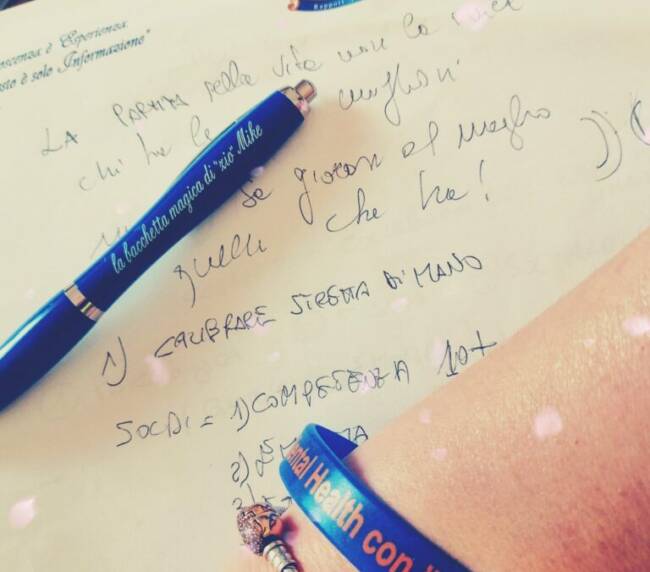 Rapport
oscenza è Esperienza.
esto è solo Informazione"
LA PARTITA della vita non la vince
chi ha le migliori
sa giocare al meglio
quelle che ha!
la bacchetta magica di "zio" Mike
1) CALIBRARE STRETTA DI MANO
SOLDI = 1) COMPETENZA 10+
2)
ental Health con